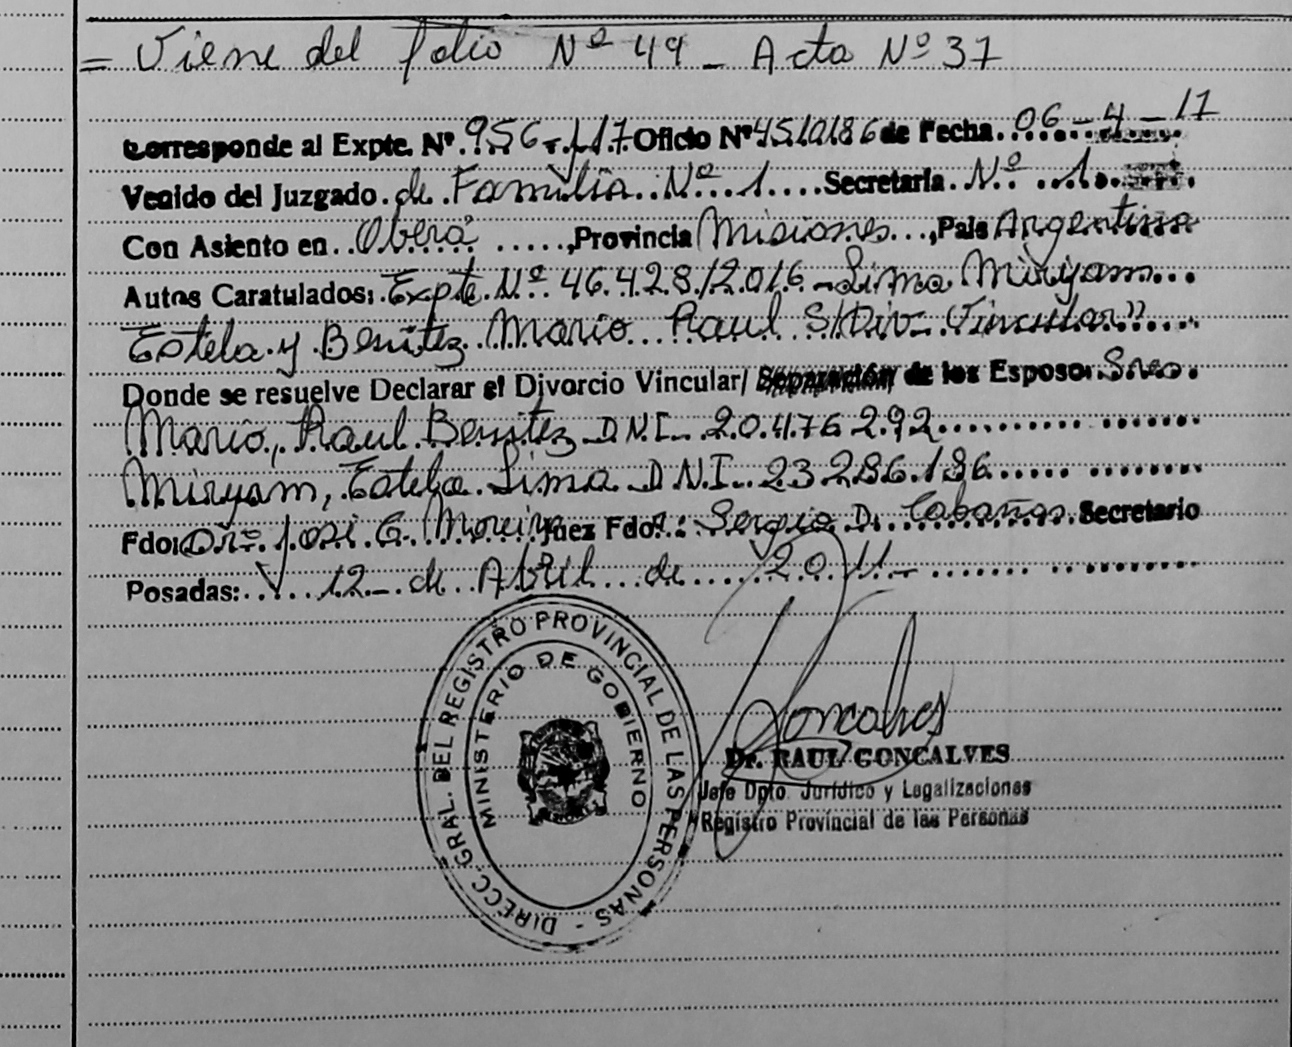 = Viene del folio Nº 49 - Acta Nº 37
Corresponde al Expte. Nº 956-J/17 Oficio Nº 4510186 de Fecha 06-4-17
Venido del Juzgado de Familia Nº 1 Secretaría Nº 1
Con Asiento en Oberá, Provincia Misiones, País Argentina
Autos Caratulados: Expte. Nº 46.428/2016 - Lima Miryam
Estela y Benitez Mario Raul S/Div. Vincular"
Donde se resuelve Declarar el Divorcio Vincular/ Separación de los Esposo: Sres.
Mario, Raul Benitez D.N.I. 20.476.292
Miryam, Estela Lima D.N.I. 23.286.186
Fdo: Dr. José G. Moreira Juez Fdo.: Sergio D. Cabañas Secretario
Posadas: 12 - de Abril de
Goncalves
Dr. RAUL GONCALVES
Jefe Dpto Jurídico y Legalizaciones
Registro Provincial de las Personas
DIRECC. GRAL. DEL REGISTRO PROVINCIAL DE LAS PERSONAS -
MINISTERIO DE GOBIERNO